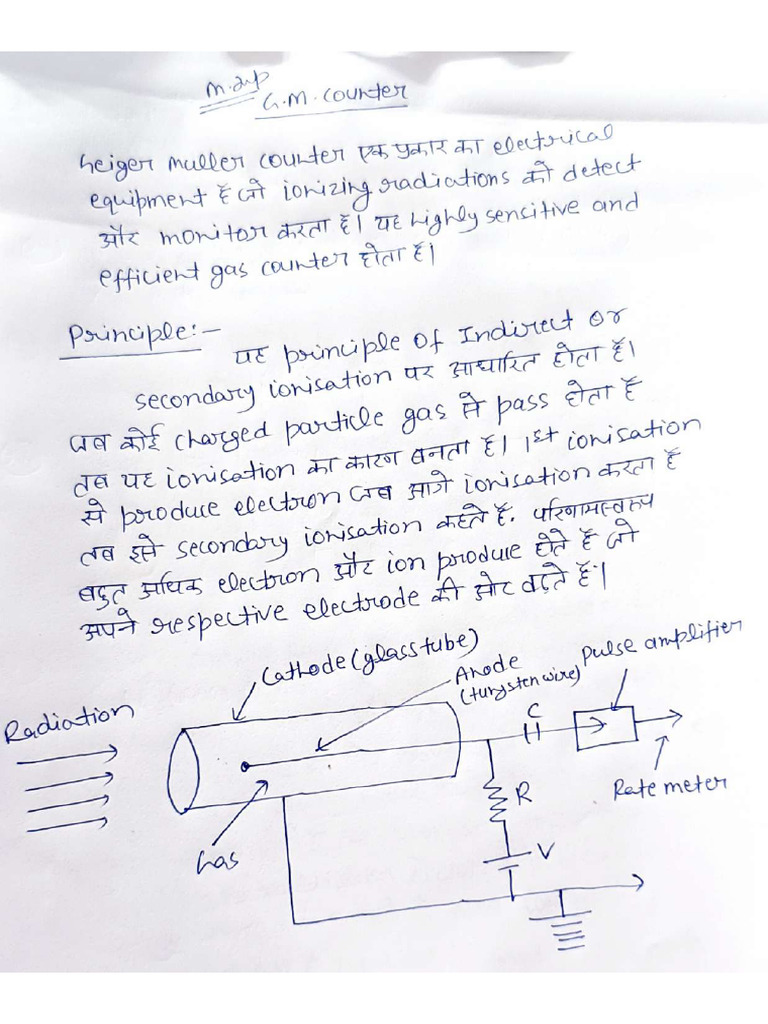 m.Imp
G.M. Counter
Geiger muller counter एक प्रकार का electrical
equipment है जो ionizing radiations को detect
और monitor करता है। यह highly sensitive and
efficient gas counter होता है।
Principle:-
यह principle of Indirect or
secondary ionisation पर आधारित होता है।
जब कोई charged particle gas से pass होता है
तब यह ionisation का कारण बनता है। 1st ionisation
से produce electron जब आगे ionisation करता है
तब इसे secondary ionisation कहते हैं. परिणामस्वरूप
बहुत अधिक electron और ion produce होते हैं जो
अपने respective electrode की ओर बढ़ते हैं।
Cathode (glass tube)
Anode
(tungsten wire)
Pulse amplifier
Radiation
C
R
Rate meter
Gas
V